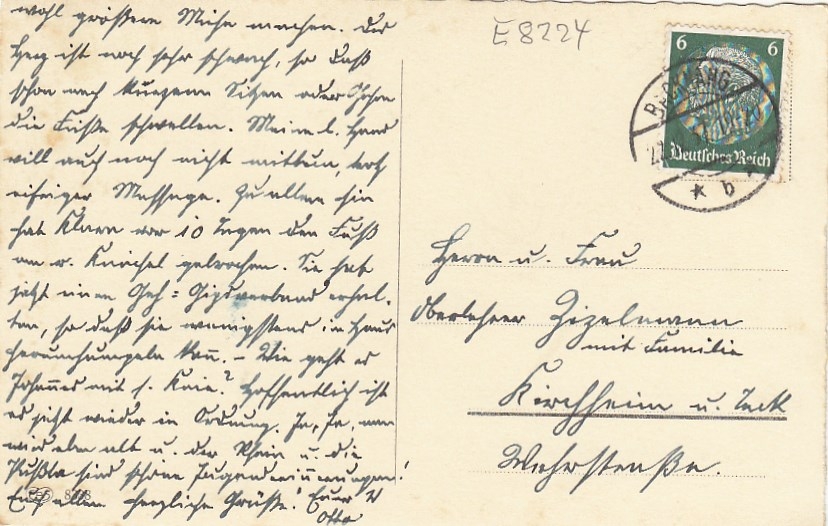 wohl größere Mühe machen. Das
Herz ist noch sehr schwach, so daß
schon nach kurzem Sitzen oder Stehen
die Füße schwellen. Meine l. Hand
will auch noch nicht mittun, trotz
eifriger Massage. Zu allem hin
hat Klara vor 10 Tagen den Fuß
am r. Knöchel gebrochen. Sie hat
jetzt einen Geh = Gipsverband erhal-
ten, so daß sie wenigstens im Haus
herumhumpeln kann. – Wie geht es
Johannes mit s. Knie? Hoffentlich ist
es jetzt wieder in Ordnung. Ja, Ja, man
wird eben alt u. der Rhein u. die
Pußta sind schöne Jugenderinnerungen!
Euch allen herzliche Grüße! Euer
Otto
E 8224
6 6
Deutsches Reich
BACKNANG
* b
Herrn u. Frau
Oberlehrer Zizelmann
mit Familie
Kirchheim u. Teck
Wehrstraße.